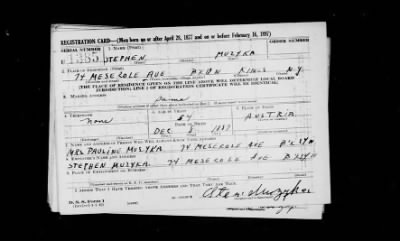 REGISTRATION CARD—(Men born on or after April 28, 1877 and on or before February 16, 1897)
SERIAL NUMBER 1. NAME (Print) ORDER NUMBER
1385 STEPHEN MUZYKA
2. PLACE OF RESIDENCE (Print)
74 MESEROLE AVE BKLN KINGS N.Y.
[THE PLACE OF RESIDENCE GIVEN ON THE LINE ABOVE WILL DETERMINE LOCAL BOARD
JURISDICTION; LINE 2 OF REGISTRATION CERTIFICATE WILL BE IDENTICAL]
3. MAILING ADDRESS
Same
4. TELEPHONE 5. AGE IN YEARS 6. PLACE OF BIRTH
none 54 AUSTRIA
DATE OF BIRTH
DEC 1887
7. NAME AND ADDRESS OF PERSON WHO WILL ALWAYS KNOW YOUR ADDRESS
MRS PAULINE MUZYKA 74 MESEROLE AVE
8. EMPLOYER'S NAME AND ADDRESS
STEPHEN MUZYKA 74 MESEROLE AVE BKLYN
9. PLACE OF EMPLOYMENT OR BUSINESS
I AFFIRM THAT I HAVE VERIFIED ABOVE ANSWERS AND THAT THEY ARE TRUE.
D. S. S. Form 1 Muzyka